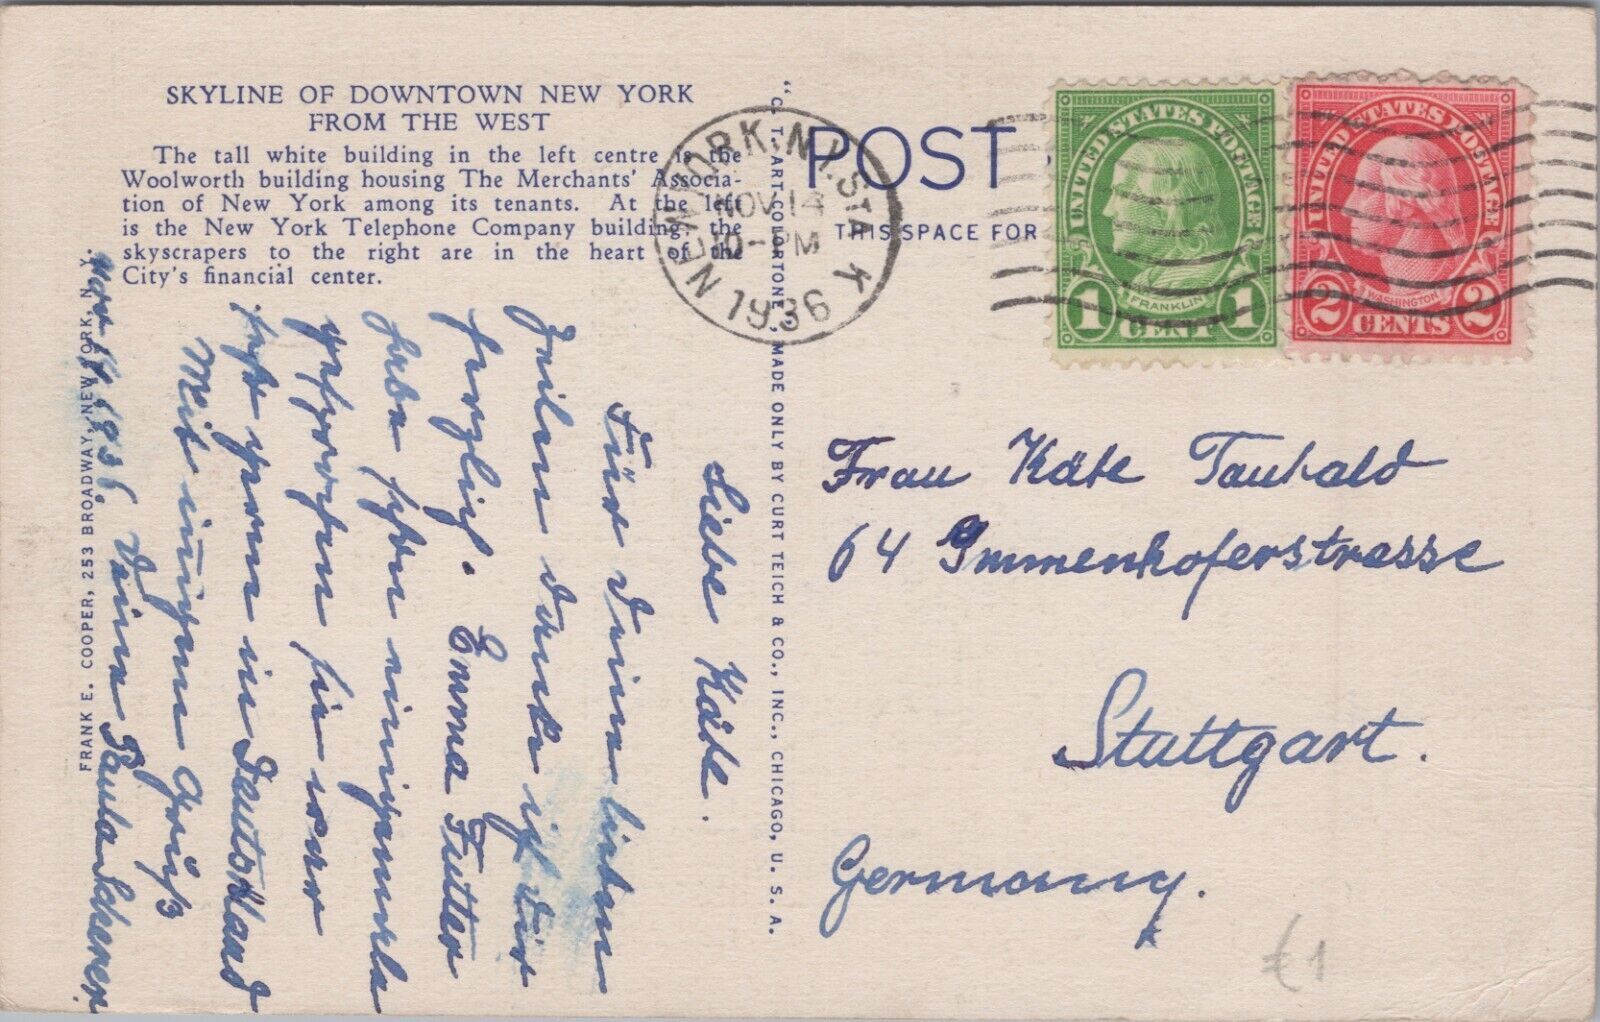 SKYLINE OF DOWNTOWN NEW YORK
FROM THE WEST
The tall white building in the left centre is the
Woolworth building housing The Merchants' Associa-
tion of New York among its tenants. At the left
is the New York Telephone Company building; the
skyscrapers to the right are in the heart of the
City's financial center.
Liebe Käte.
Für Deine lieben
Zeilen danke ich Dir
herzlich. Emma Futter
habe schon einigemale
gesprochen sie war
gern in Deutschland
Mit innigem Gruß
Nov 14 1936. Deine Paula Scherer.
FRANK E. COOPER, 253 BROADWAY, NEW YORK, N. Y.
"C. T. ART-COLORTONE", MADE ONLY BY CURT TEICH & CO., INC., CHICAGO, U. S. A.
POST
THIS SPACE FOR
NEW YORK, N.Y. STA K
NOV 14
10-PM
1936
UNITED STATES POSTAGE
FRANKLIN
1 CENT 1
UNITED STATES POSTAGE
WASHINGTON
2 CENTS 2
Frau Käte Taubald
64 Immenhoferstrasse
Stuttgart.
Germany.
£1